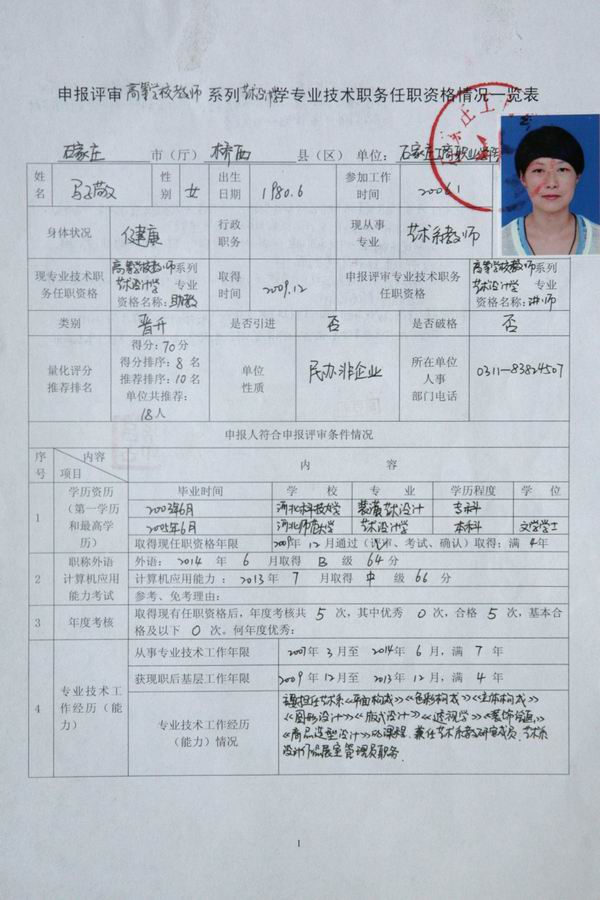 申报评审高等学校教师系列艺术设计学专业技术职务任职资格情况一览表
石家庄 市（厅） 桥西 县（区） 单位：石家庄工商职业学院
姓名 性别 女 出生日期 1980.6 参加工作时间 2006.1
身体状况 健康 行政职务 现从事专业 艺术系教师
现专业技术职务任职资格 高等学校教师系列 艺术设计学 专业 资格名称：助教 取得时间 2009.12 申报评审专业技术职务任职资格 高等学校教师系列 艺术设计学 专业 资格名称：讲师
类别 晋升 是否引进 否 是否破格 否
量化评分推荐排名 得分：70分 得分排序：8名 推荐排序：10名 单位共推荐：18人 单位性质 民办非企业 所在单位人事部门电话 0311-83824507
申报人符合申报评审条件情况
序号 内容 项目 内 容
1 学历资历（第一学历和最高学历） 毕业时间 学 校 专 业 学历程度 学 位
2003年6月 河北科技大学 装潢艺术设计 专科
2005年6月 河北师范大学 艺术设计学 本科 文学学士
取得现任职资格年限 2009年 12月通过（评审、考试、确认）取得；满 4年
2 职称外语计算机应用能力考试 外语：2014 年 6 月取得 B 级 64分
计算机应用能力：2013年 7 月取得 中 级 66 分
参考、免考理由：
3 年度考核 取得现有任职资格后，年度考核共 5 次，其中优秀 0 次，合格 5 次，基本合格及以下 0 次。何年度优秀：
4 专业技术工作经历（能力） 从事专业技术工作年限 2007年 3月至 2014年 6月，满 7 年
获现职后基层工作年限 2009年 12月至 2013年 12月，满 4 年
专业技术工作经历（能力）情况 主要担任艺术系《平面构成》《色彩构成》《立体构成》
《图形设计》《版式设计》《透视学》《装饰绘画》
《商品造型设计》的课程，兼任艺术系教研室成员，艺术系
设计作品展室管理员职务．
1